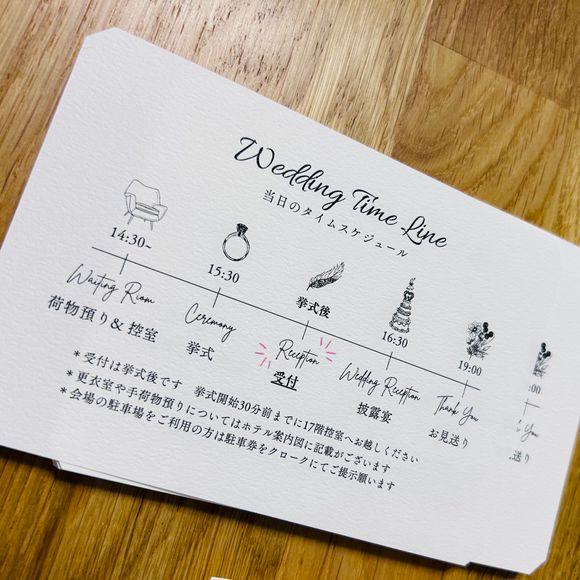 Wedding Time Line
当日のタイムスケジュール
14:30~
Waiting Room
荷物預り& 控室
15:30
Ceremony
挙式
挙式後
Reception
受付
16:30
Wedding Reception
披露宴
19:00
Thank You
お見送り
:00
You
送り
* 受付は挙式後です 挙式開始30分前までに17階控室へお越しください
* 更衣室や手荷物預りについてはホテル案内図に記載がございます
* 会場の駐車場をご利用の方は駐車券をクロークにてご提示願います